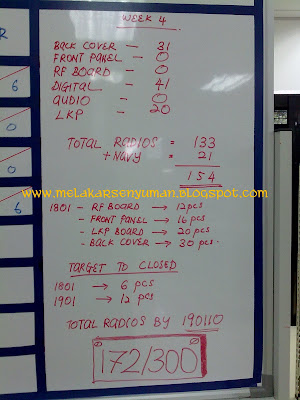 WEEK 4
BACK COVER - 31
FRONT PANEL - 0
RF BOARD - 0
DIGITAL - 41
AUDIO - 0
LKP - 20
TOTAL RADIOS = 133
+ NAVY = 21
154
www.melakarsenyuman.blogspot.com
1801 - RF BOARD → 12 pcs
- FRONT PANEL → 16 pcs
- LKP BOARD → 20 pcs
- BACK COVER → 30 pcs.
TARGET TO CLOSED
1801 → 6 pcs
1901 → 12 pcs
TOTAL RADIOS BY 190110
172/300
R
6
0
6